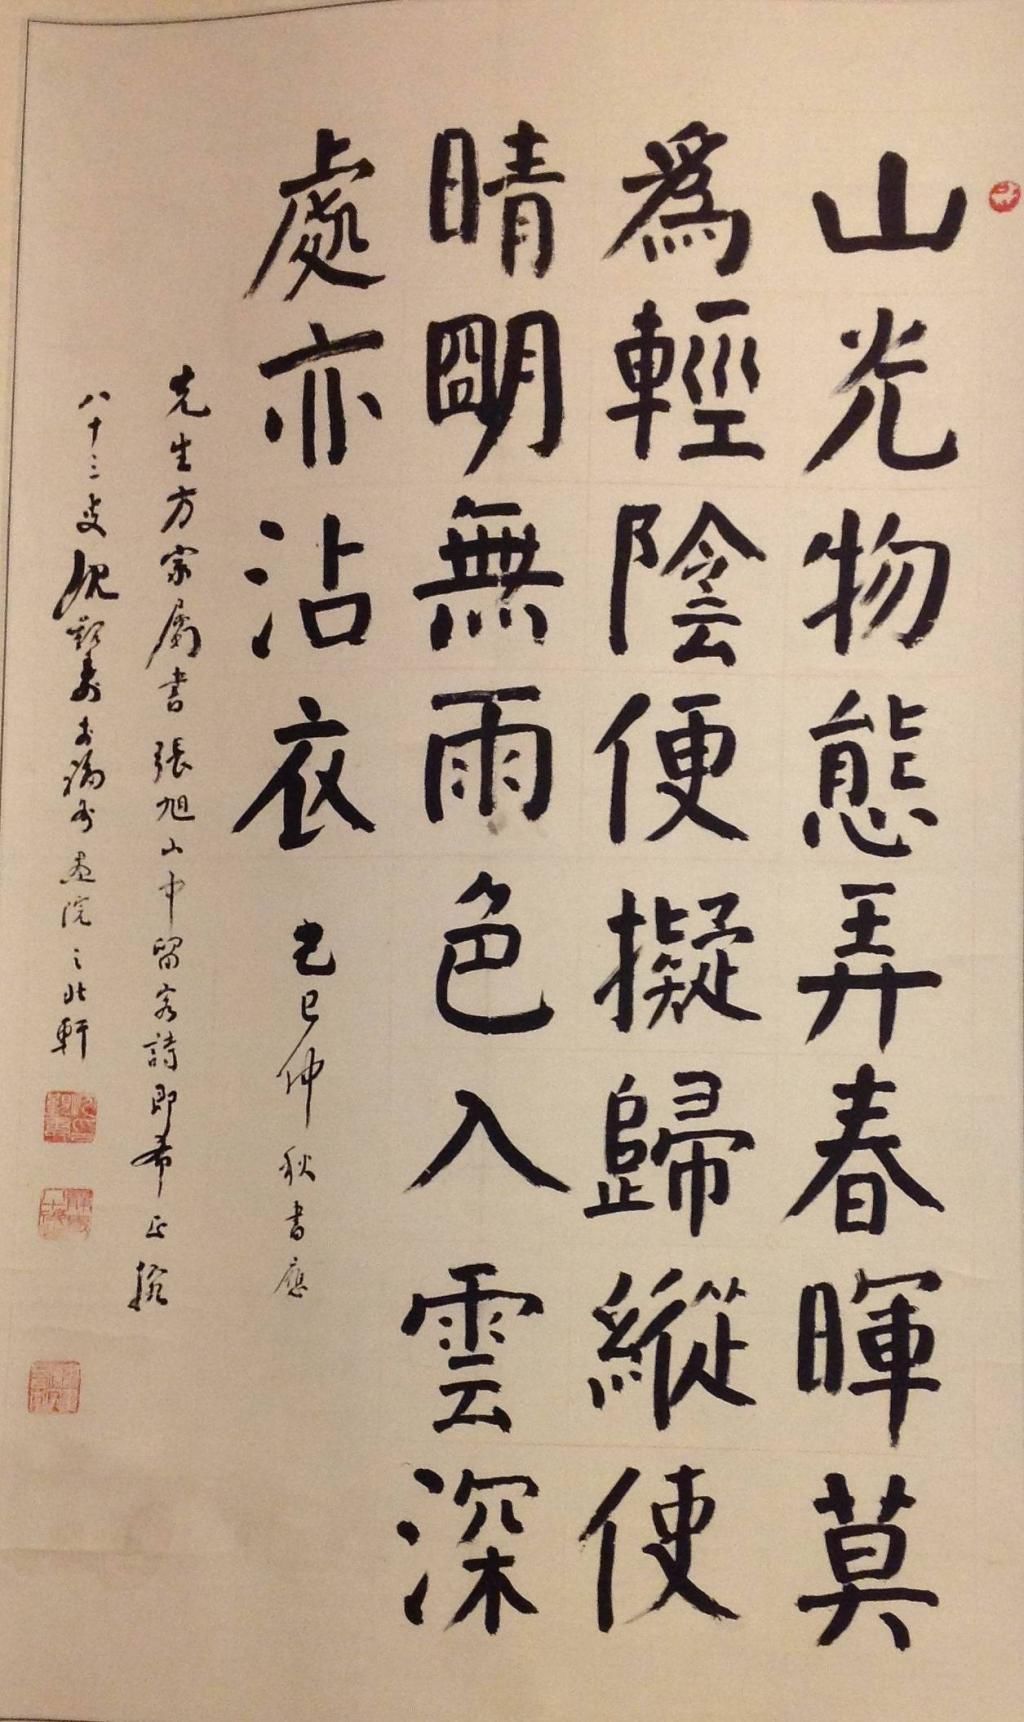 山光物態弄春暉莫
為輕陰便擬歸縱使
晴明無雨色入雲深
處亦沾衣
己巳仲秋書應
先生方家屬書張旭山中留客詩即希正捥
八十三叟沈覲壽書福州畫院之北軒